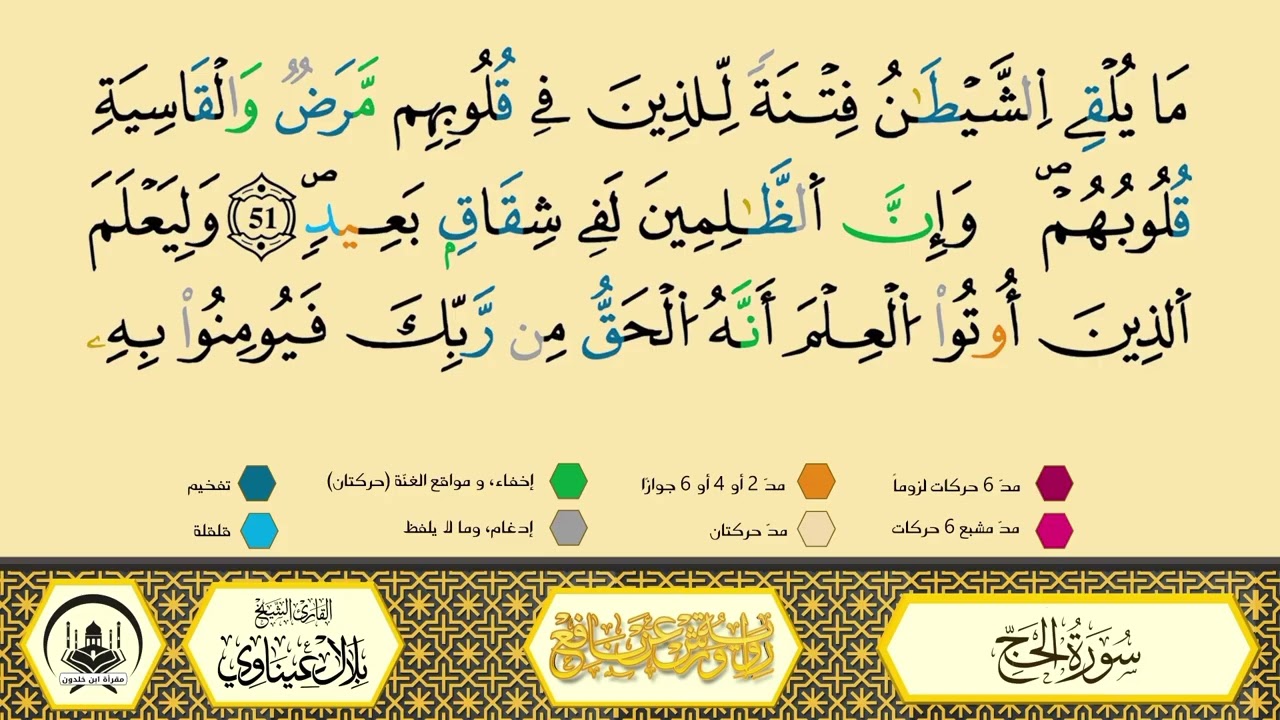 مَا يُلْقِے اِ۬لشَّيْطَٰنُ فِتْنَةٗ لِّلذِينَ فِے قُلُوبِهِم مَّرَضٞ وَالْقَاسِيَةِ
قُلُوبُهُمْۖ وَإِنَّ اَ۬لظَّٰلِمِينَ لَفِے شِقَاقِۢ بَعِيدٖۖ 51 وَلِيَعْلَمَ
اَ۬لذِينَ أُوتُواْ اُ۬لْعِلْمَ أَنَّهُ اُ۬لْحَقُّ مِن رَّبِّكَ فَيُومِنُواْ بِهِۦ
مدّ 6 حركات لزوماً
مدّ 2 أو 4 أو 6 جوازًا
إخفاء، و مواقع الغنّة (حركتان)
تفخيم
مدّ مشبع 6 حركات
مدّ حركتان
إدغام، وما لا يلفظ
قلقلة
سُورَةُ الحَجّ
رواية ورش عن نافع
القارئ الشيخ
بلال عيناوي
مقرأة ابن خلدون